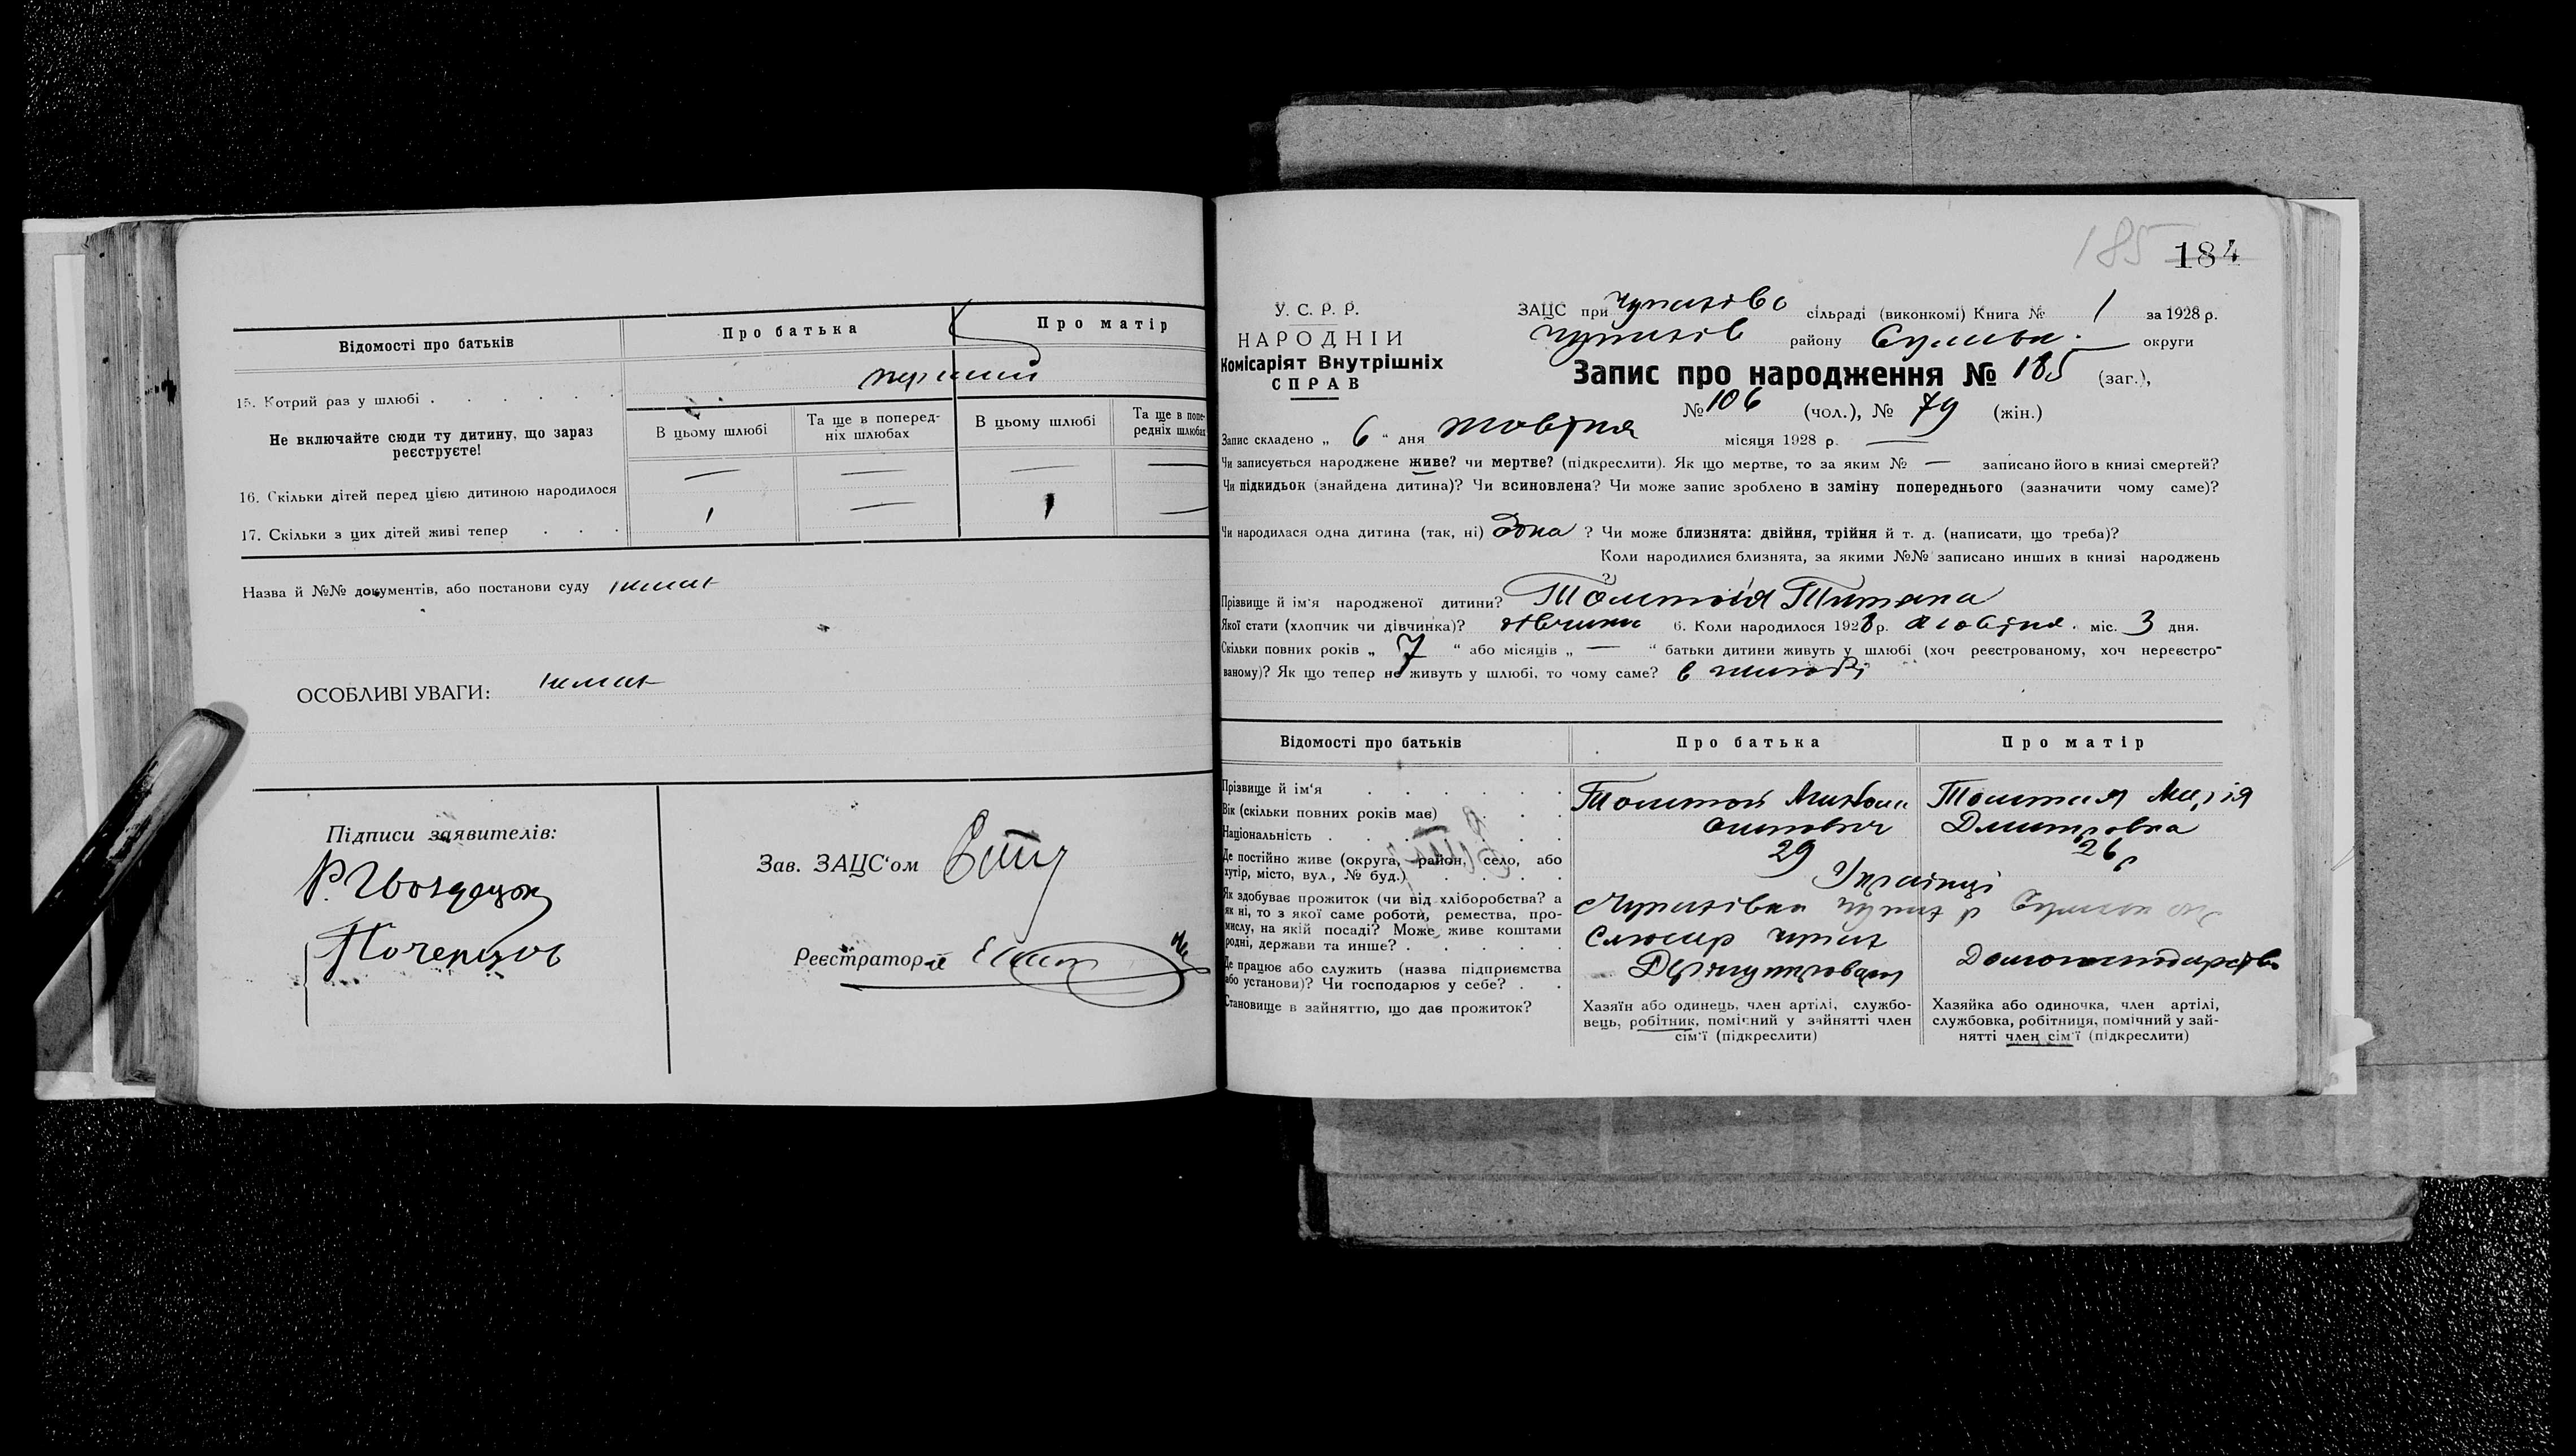 Відомості про батьків
Про батька
Про матір
15. Котрий раз у шлюбі . . . . . .
перший
Не включайте сюди ту дитину, що зараз реєструєте!
В цьому шлюбі
Та ще в поперед-
ніх шлюбах
В цьому шлюбі
Та ще в попе-
редніх шлюбах
16. Скільки дітей перед цією дитиною народилося — — — —
17. Скільки з цих дітей живі тепер . . . 1 — 1 —
Назва й №№ документів, або постанови суду немає
ОСОБЛИВІ УВАГИ: немає
Підписи заявителів:
Зав. ЗАЦС'ом
Реєстратор
185 184
У. С. Р. Р.
НАРОДНІЙ
Комісаріят Внутрішніх
СПРАВ
ЗАЦС при сільраді (виконкомі) Книга № 1 за 1928 р.
району округи
Запис про народження № 185 (заг.),
№ 106 (чол.), № 79 (жін.)
Запис складено „ 6 “ дня жовтня місяця 1928 р. —
Чи записується народжене живе? чи мертве? (підкреслити). Як що мертве, то за яким № — записано його в книзі смертей?
Чи підкидьок (знайдена дитина)? Чи всиновлена? Чи може запис зроблено в заміну попереднього (зазначити чому саме)?
Чи народилася одна дитина (так, ні) одна ? Чи може близнята: двійня, трійня й т. д. (написати, що треба)?
Коли народилися близнята, за якими №№ записано инших в книзі народжень
Прізвище й ім'я народженої дитини? Толстая
Якої стати (хлопчик чи дівчинка)? дівчинка 6. Коли народилося 1928 р. жовтня міс. 3 дня.
Скільки повних років „ 7 “ або місяців „ — “ батьки дитини живуть у шлюбі (хоч реєстрованому, хоч нереєстро-
ваному)? Як що тепер не живуть у шлюбі, то чому саме? в шлюбі
Відомості про батьків
Про батька
Про матір
Прізвище й ім'я . . . . . .
Толстой Микола
Толстая Марія
Дмитровна
Вік (скільки повних років має) . . .
29
26
Національність . . . . . .
Українці
Де постійно живе (округа, район, село, або
хутір, місто, вул., № буд.) . . . .
Чупахівка
Як здобуває прожиток (чи від хліборобства? а
як ні, то з якої саме роботи, ремества, про-
мислу, на якій посаді? Може живе коштами
родні, держави та инше? . . . . .
Слюсар
Домогосподарство
Де працює або служить (назва підприємства
або установи)? Чи господарює у себе? . .
Становище в зайняттю, що дає прожиток?
Хазяїн або одинець, член артілі, службо-
вець, робітник, помічний у зайнятті член
сім'ї (підкреслити)
Хазяйка або одиночка, член артілі,
службовка, робітниця, помічний у зай-
нятті член сім'ї (підкреслити)